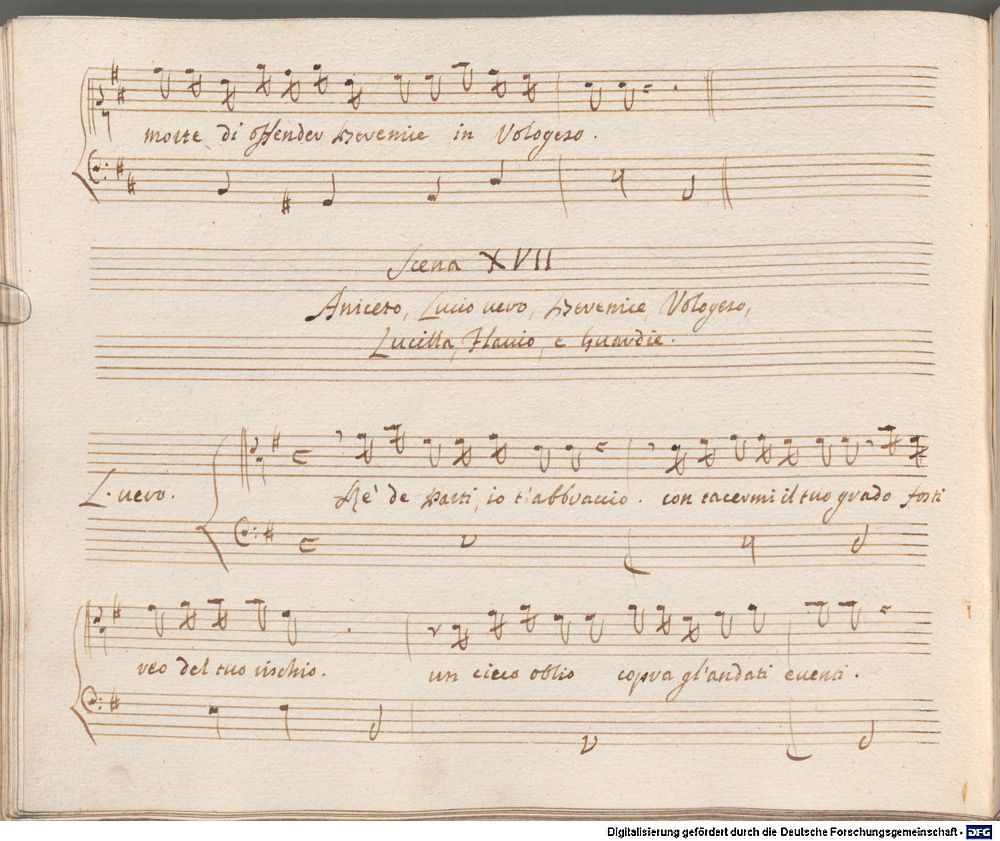 morte di offender Berenice in Vologeso.
Scena XVII
Aniceto, Lucio vero, Berenice, Vologeso,
Lucilla, Flavio, e Guardie.
L. vero.
Rè de Parti, io t'abbraccio. con tacermi il tuo grado fosti
reo del tuo rischio. un cieco oblio copra gl'andati eventi.
Digitalisierung gefördert durch die Deutsche Forschungsgemeinschaft - DFG